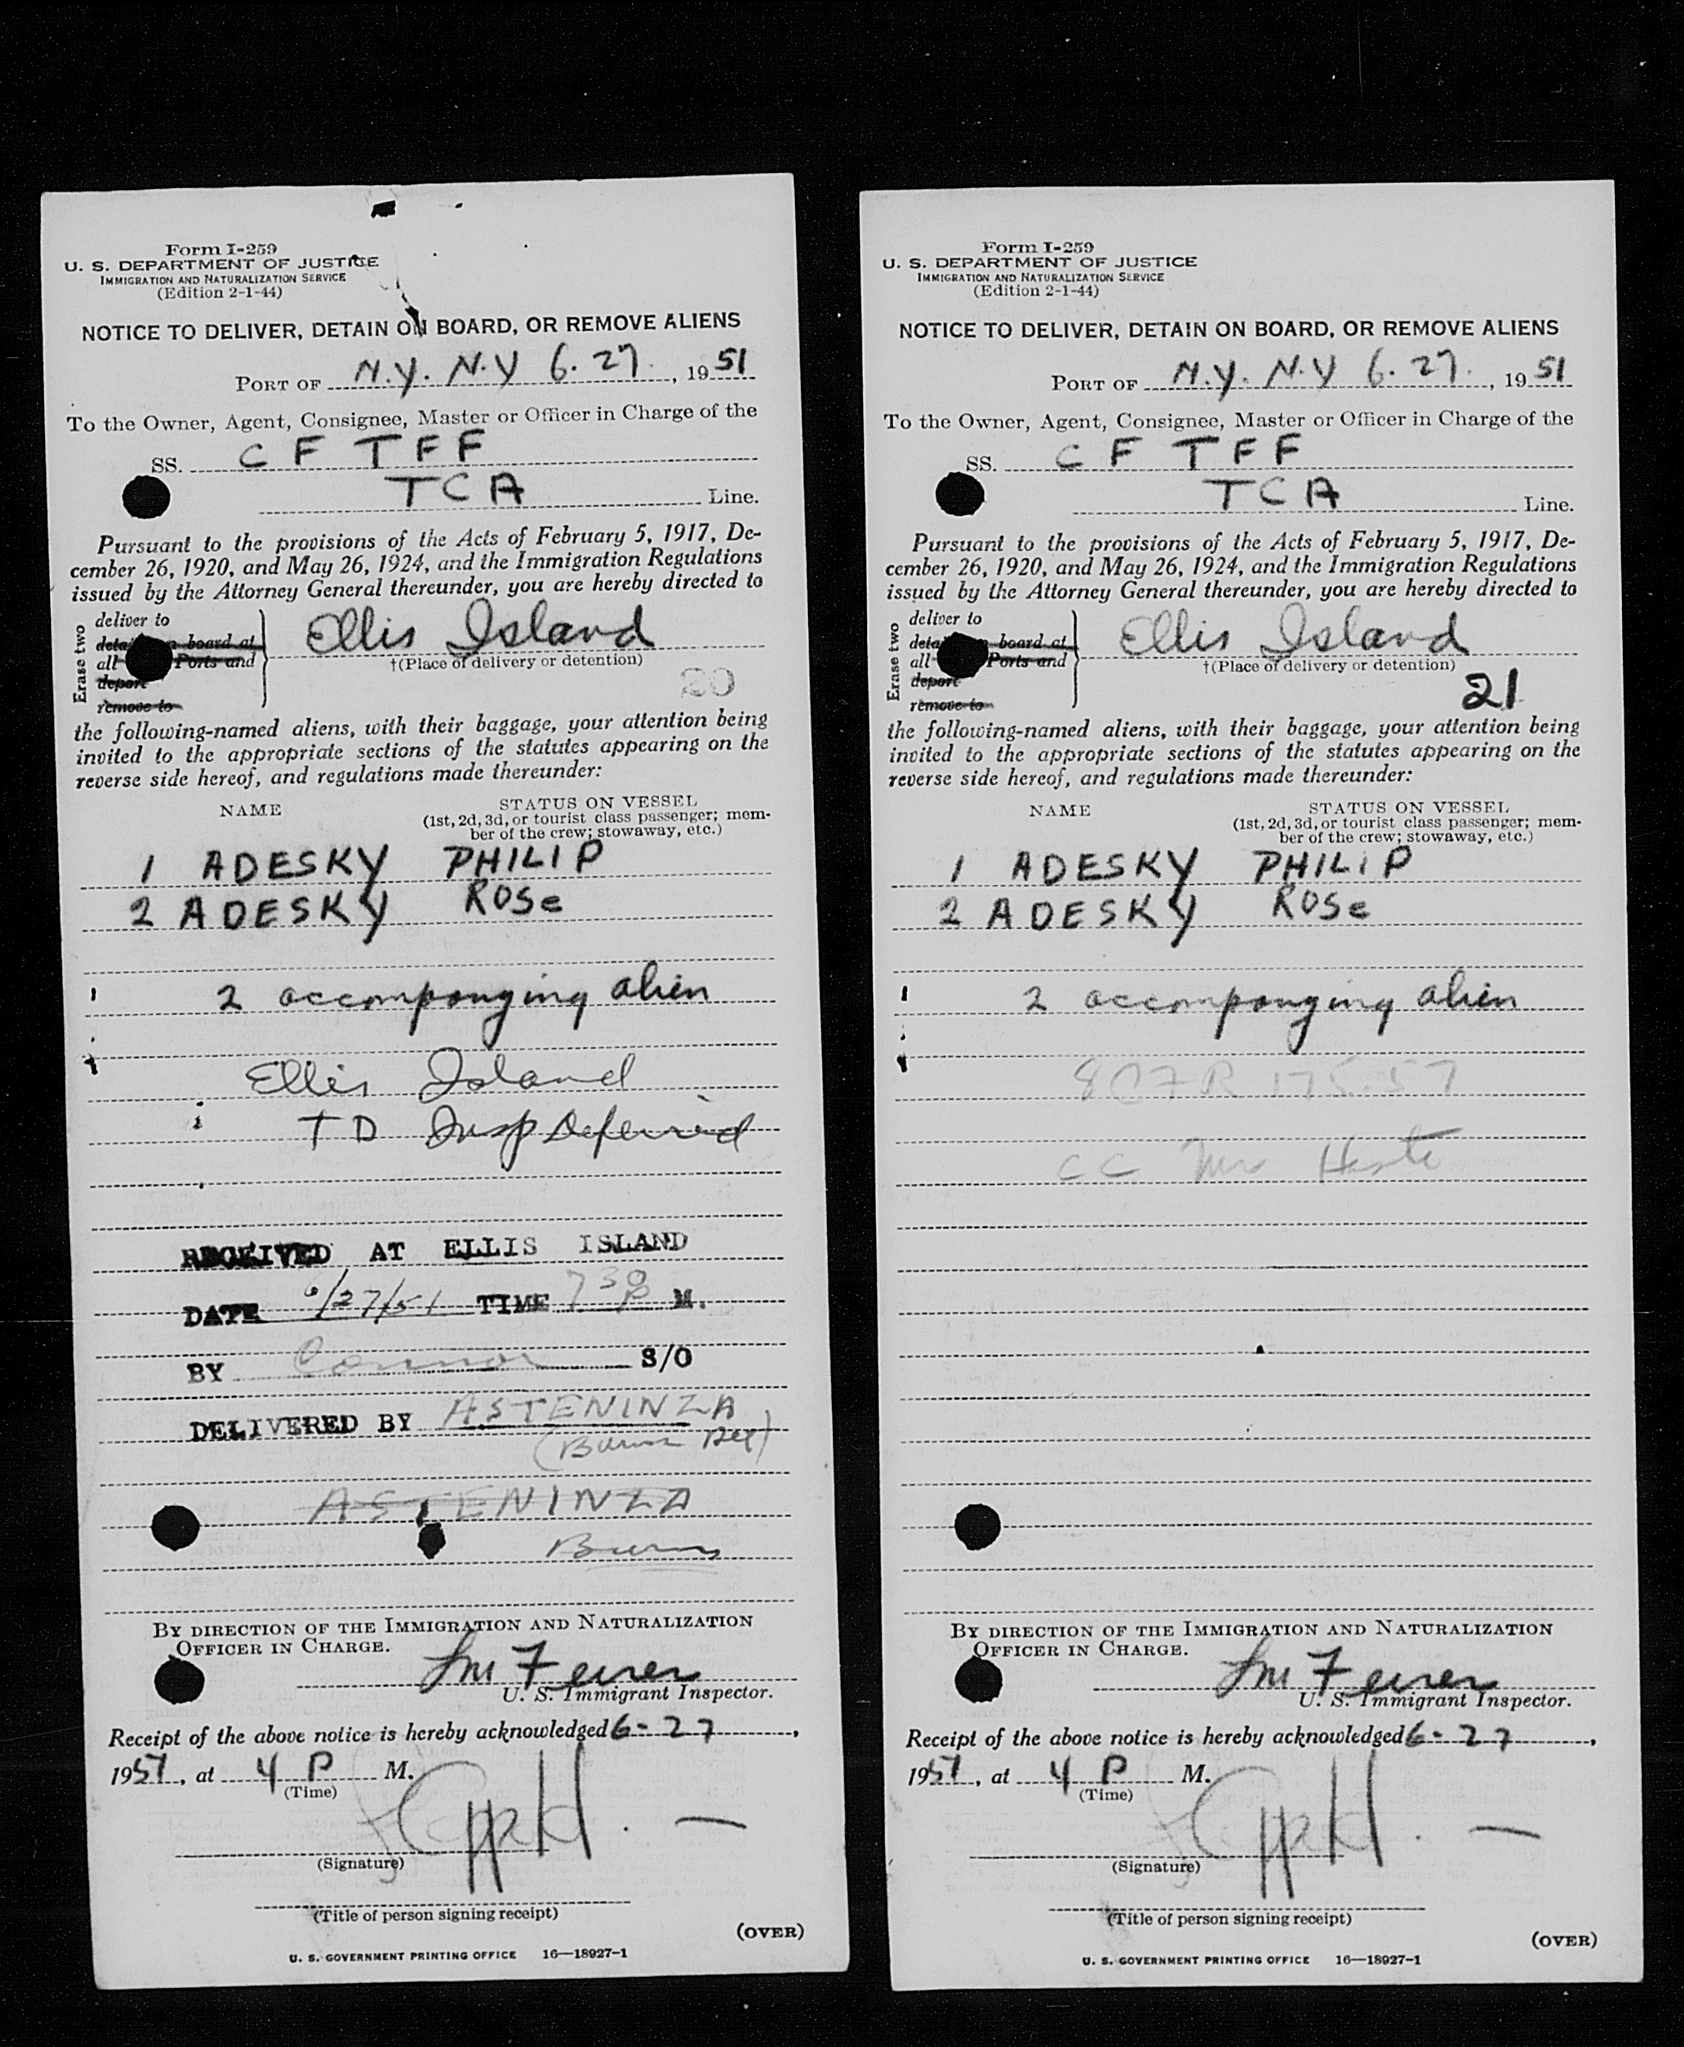 Form I-259
U. S. DEPARTMENT OF JUSTICE
IMMIGRATION AND NATURALIZATION SERVICE
(Edition 2-1-44)
NOTICE TO DELIVER, DETAIN ON BOARD, OR REMOVE ALIENS
PORT OF N.Y. N.Y 6. 27. , 19 51
To the Owner, Agent, Consignee, Master or Officer in Charge of the
SS. C F T F F
T C A Line.
Pursuant to the provisions of the Acts of February 5, 1917, De-
cember 26, 1920, and May 26, 1924, and the Immigration Regulations
issued by the Attorney General thereunder, you are hereby directed to
Erase two
deliver to
board at
all Ports and
deport
remove to
Ellis Island
†(Place of delivery or detention)
20
the following-named aliens, with their baggage, your attention being
invited to the appropriate sections of the statutes appearing on the
reverse side hereof, and regulations made thereunder:
NAME STATUS ON VESSEL
(1st, 2d, 3d, or tourist class passenger; mem-
ber of the crew; stowaway, etc.)
1 ADESKY PHILIP
2 ADESKY ROSe
2 accompanging alien
Ellis Island
T D Insp Deferred
RECEIVED AT ELLIS ISLAND
DATE 6/27/51 TIME 7 30 P M.
BY Connor S/O
DELIVERED BY ASTENINZA
(Burns
ASTENINZA
Burns
BY DIRECTION OF THE IMMIGRATION AND NATURALIZATION
OFFICER IN CHARGE.
U. S. Immigrant Inspector.
Receipt of the above notice is hereby acknowledged 6-27 ,
1951, at 4 P M.
(Time)
(Signature)
(Title of person signing receipt)
(OVER)
U. S. GOVERNMENT PRINTING OFFICE 16—18927-1
Form I-259
U. S. DEPARTMENT OF JUSTICE
IMMIGRATION AND NATURALIZATION SERVICE
(Edition 2-1-44)
NOTICE TO DELIVER, DETAIN ON BOARD, OR REMOVE ALIENS
PORT OF N.Y. N.Y 6. 27. , 19 51
To the Owner, Agent, Consignee, Master or Officer in Charge of the
SS. C F T F F
T C A Line.
Pursuant to the provisions of the Acts of February 5, 1917, De-
cember 26, 1920, and May 26, 1924, and the Immigration Regulations
issued by the Attorney General thereunder, you are hereby directed to
Erase two
deliver to
board at
all Ports and
deport
remove to
Ellis Island
†(Place of delivery or detention)
21
the following-named aliens, with their baggage, your attention being
invited to the appropriate sections of the statutes appearing on the
reverse side hereof, and regulations made thereunder:
NAME STATUS ON VESSEL
(1st, 2d, 3d, or tourist class passenger; mem-
ber of the crew; stowaway, etc.)
1 ADESKY PHILIP
2 ADESKY ROSe
2 accompanging alien
8 CFR 175.57
CC Mr
BY DIRECTION OF THE IMMIGRATION AND NATURALIZATION
OFFICER IN CHARGE.
U. S. Immigrant Inspector.
Receipt of the above notice is hereby acknowledged 6-27 ,
1951, at 4 P M.
(Time)
(Signature)
(Title of person signing receipt)
(OVER)
U. S. GOVERNMENT PRINTING OFFICE 16—18927-1